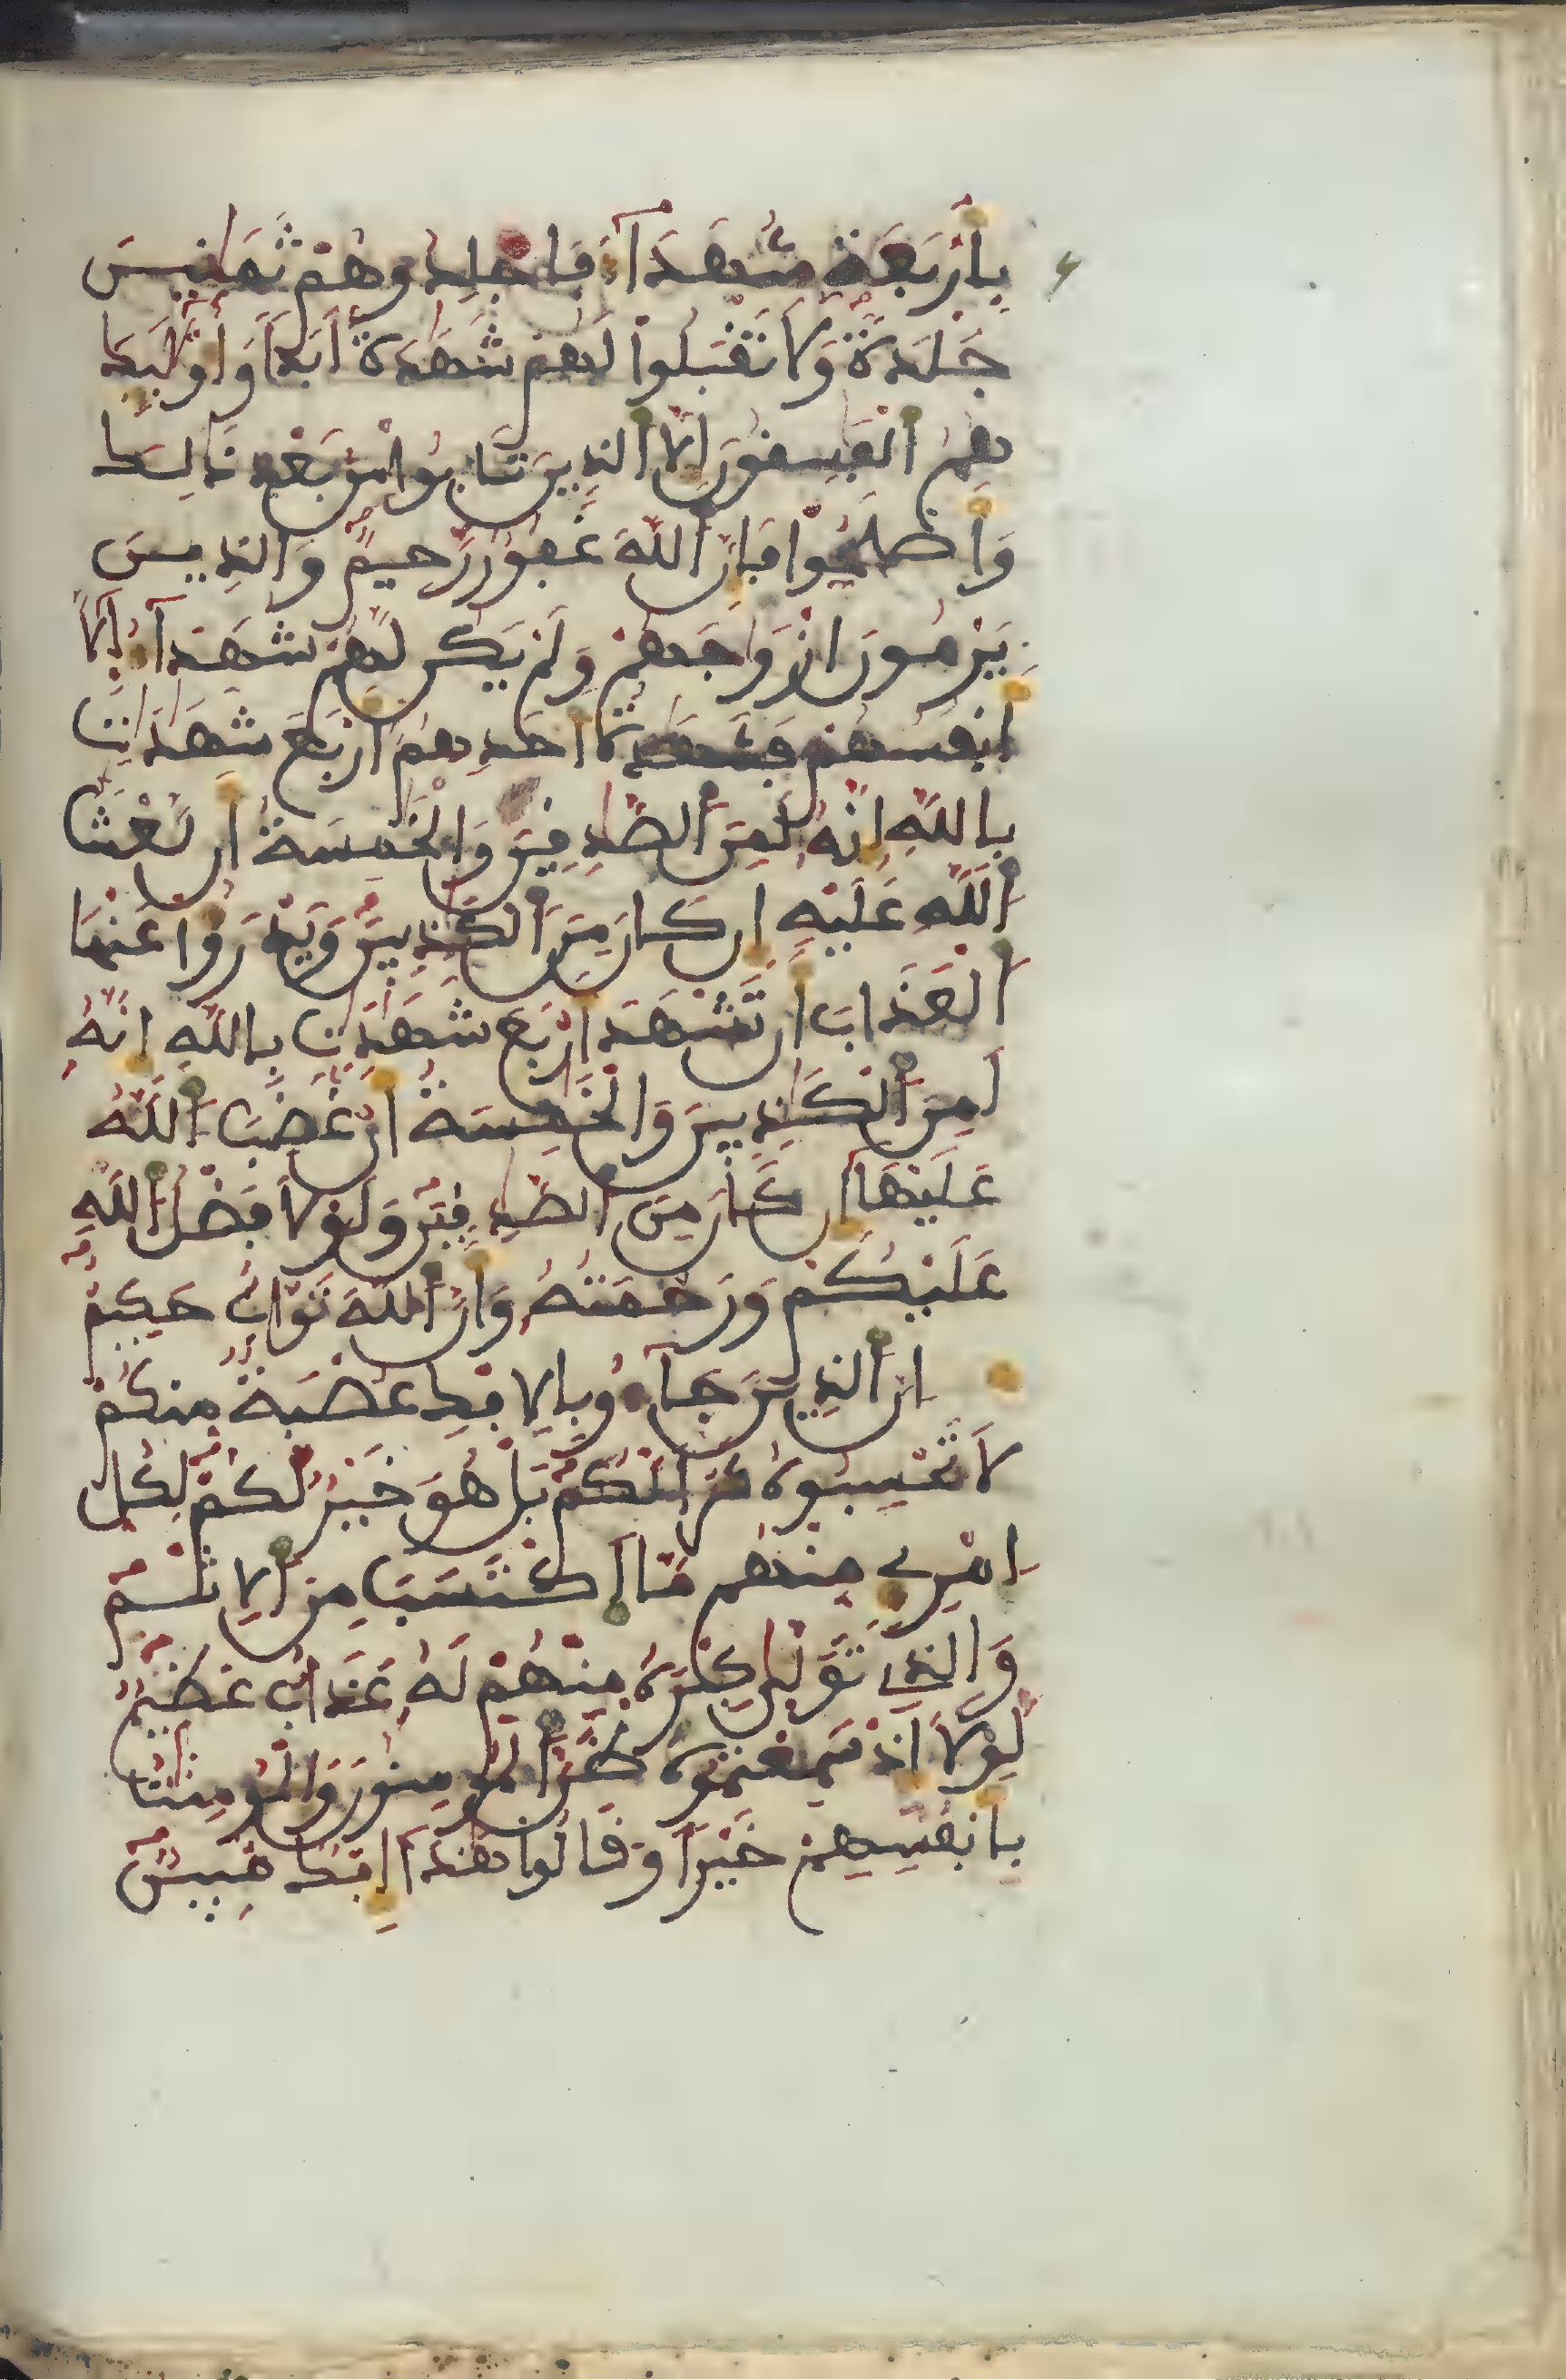 بِأَرْبَعَةِ شُهَدَآءَ فَاجْلِدُوهُمْ ثَمَٰنِينَ
جَلْدَةً وَلَا تَقْبَلُوا لَهُمْ شَهَٰدَةً اَبَداً وَأُوْلَٰٓئِكَ
هُمُ اُلْفَٰسِقُونَ إِلَّا اَلذِينَ تَابُوا مِنۢ بَعْدِ ذَٰلِكَ
وَأَصْلَحُوا فَإِنَّ اَللَّهَ غَفُورٌ رَّحِيمٌ وَالذِينَ
يَرْمُونَ أَزْوَٰجَهُمْ وَلَمْ يَكُن لَّهُمْ شُهَدَآءُ اِلَّآ
أَنفُسُهُمْ فَشَهَٰدَةُ أَحَدِهِمُ أَرْبَعَ شَهَٰدَٰتٍ
بِاللَّهِ إِنَّهُ لَمِنَ اَلصَّٰدِقِينَ وَالْخَٰمِسَةُ أَن لَّعْنَتُ
اُللَّهِ عَلَيْهِ إِن كَانَ مِنَ اَلْكَٰذِبِينَ وَيَدْرَؤُا عَنْهَا
اَلْعَذَابَ أَن تَشْهَدَ أَرْبَعَ شَهَٰدَٰتٍ بِاللَّهِ إِنَّهُ
لَمِنَ اَلْكَٰذِبِينَ وَالْخَٰمِسَةُ أَنْ غَضِبَ اَللَّهُ
عَلَيْهَآ إِن كَانَ مِنَ اَلصَّٰدِقِينَ وَلَوْلَا فَضْلُ اُللَّهِ
عَلَيْكُمْ وَرَحْمَتُهُ وَأَنَّ اَللَّهَ تَوَّابٌ حَكِيمٌ
إِنَّ اَلذِينَ جَآءُو بِالِافْكِ عُصْبَةٌ مِّنكُمْ
لَا تَحْسِبُوهُ شَرّاً لَّكُم بَلْ هُوَ خَيْرٌ لَّكُمْ لِكُلِّ
اِمْرِےٍٕ مِّنْهُم مَّا اَكْتَسَبَ مِنَ اَلِاثْمِ
وَالذِے تَوَلَّىٰ كِبْرَهُ مِنْهُمْ لَهُ عَذَابٌ عَظِيمٌ
لَّوْلَآ إِذْ سَمِعْتُمُوهُ ظَنَّ اَلْمُومِنُونَ وَالْمُومِنَٰتُ
بِأَنفُسِهِمْ خَيْراً وَقَالُوا هَٰذَآ إِفْكٌ مُّبِينٌ